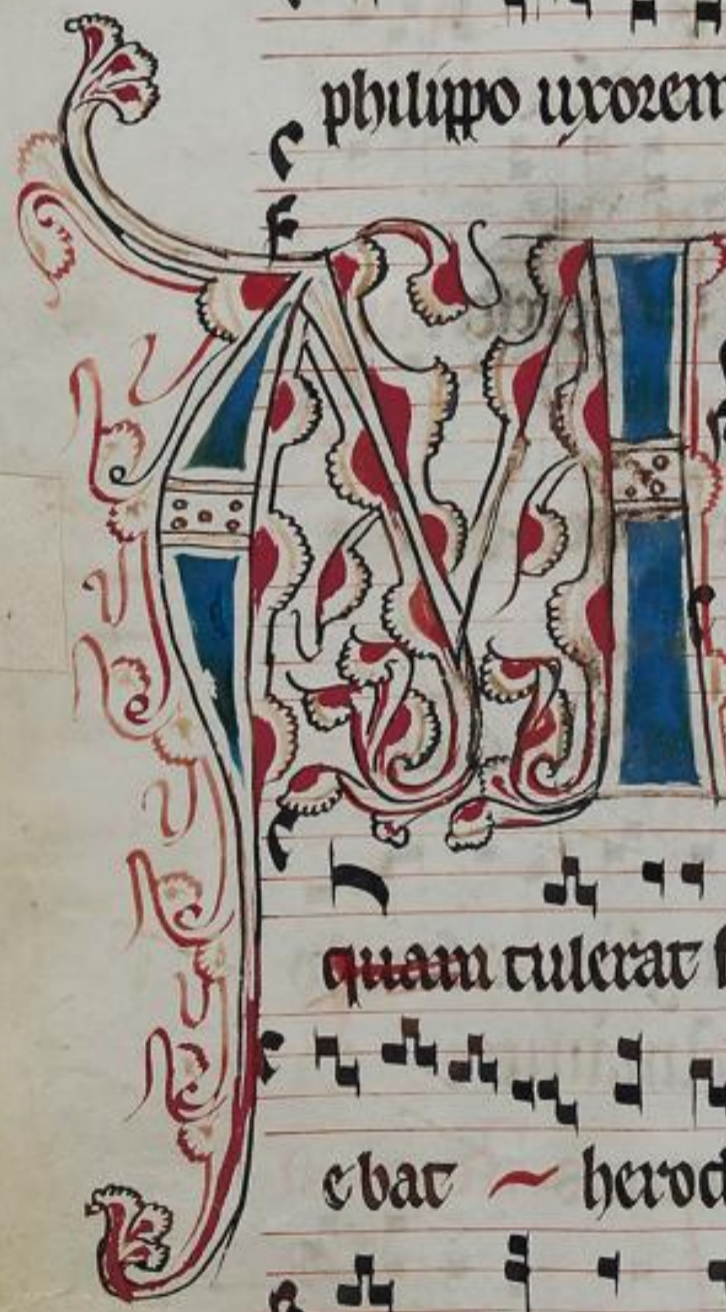 philippo uxorem
M
quam tulerat
ebat ~ herod